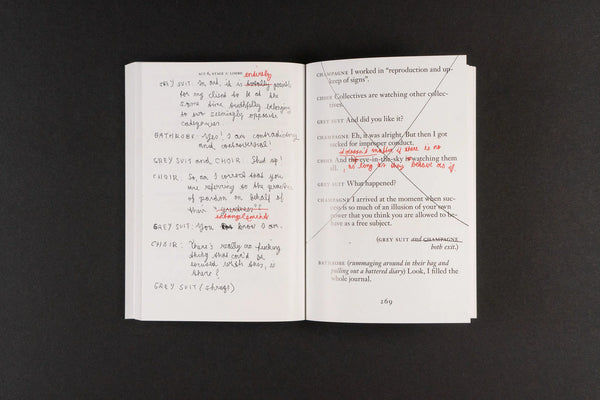 ACT 2, STAGE 2: LIMBO
entirely
GREY SUIT: So, it is totally possible
for my client to be at the
same time truthfully belonging
to two seemingly opposite
categories
BATHROBE: Yes! I am contradictory
and controversial!
GREY SUIT and CHOIR: Shut up!
CHOIR: So, am I correct that you
are referring to the practice
of pardon on behalf of
their
entanglements
GREY SUIT: You know I am.
CHOIR: There's really no fucking
thing that could be
is
there?
GREY SUIT (shrugs)
CHAMPAGNE I worked in “reproduction and up-
keep of signs”.
CHOIR Collectives are watching other collec-
tives.
GREY SUIT And did you like it?
CHAMPAGNE Eh, it was alright. But then I got
sacked for improper conduct.
it doesn't matter if there is no
CHOIR And the eye-in-the-sky is watching them
all. as long as they behave as if.
GREY SUIT What happened?
CHAMPAGNE I arrived at the moment when suc-
cess is so much of an illusion of your own
power that you think you are allowed to be-
have as a free subject.
(GREY SUIT and CHAMPAGNE
both exit.)
BATHROBE (rummaging around in their bag and
pulling out a battered diary) Look, I filled the
whole journal.
269